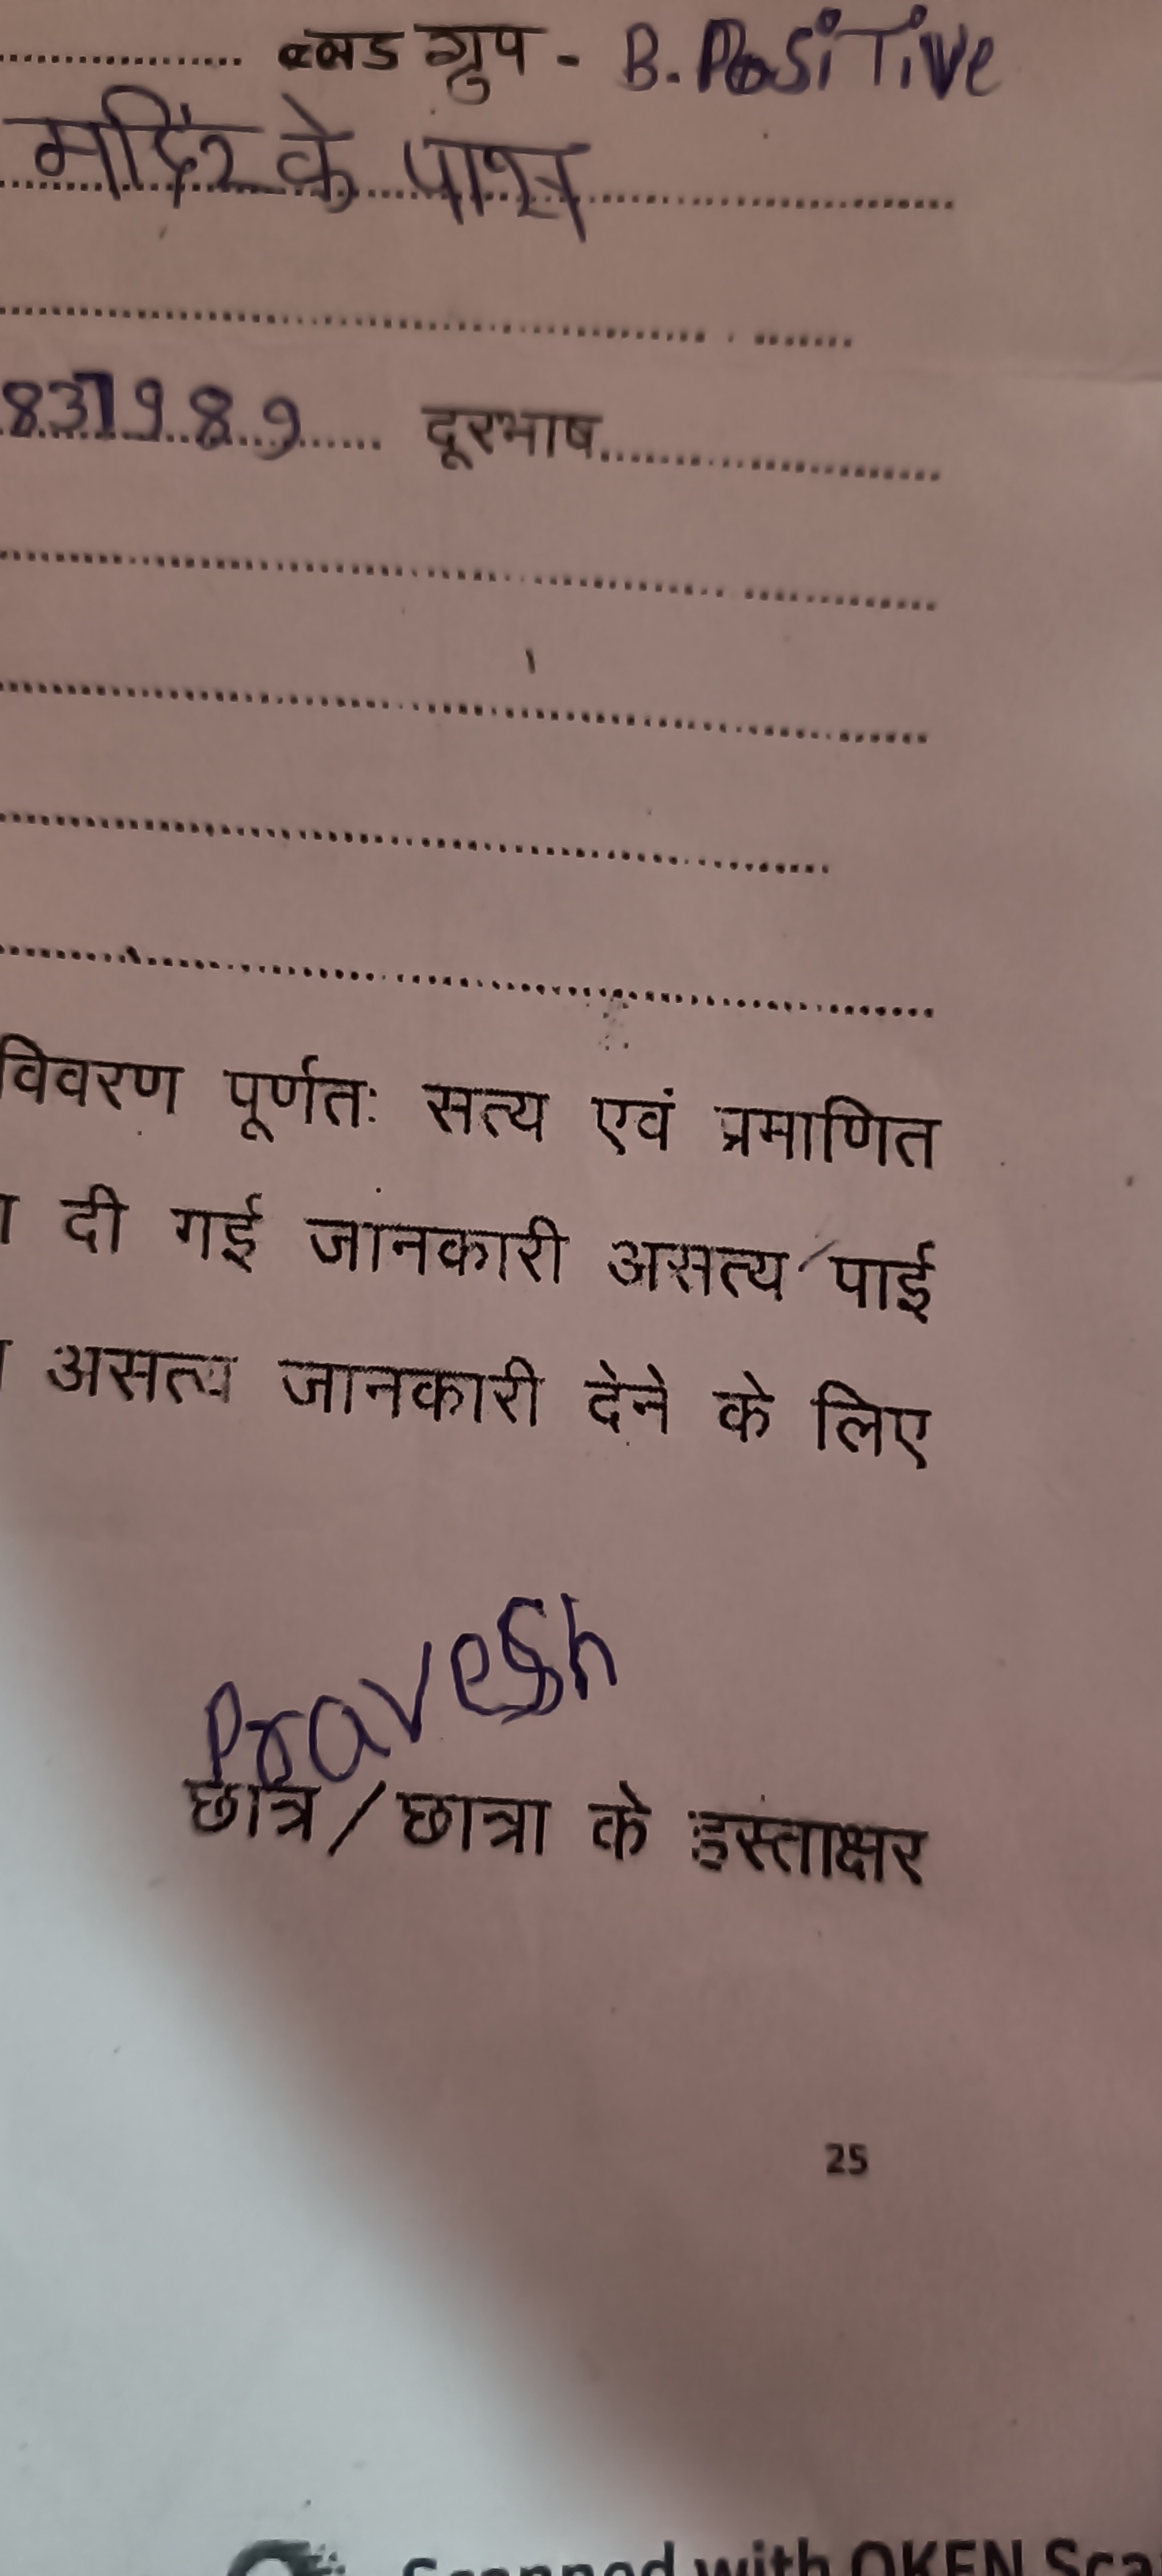 ब्लड ग्रुप - B. Positive
मदिंर के पास
8371989 दूरभाष
विवरण पूर्णतः सत्य एवं प्रमाणित
दी गई जानकारी असत्य पाई
असत्य जानकारी देने के लिए
Pravesh
छात्र / छात्रा के हस्ताक्षर
25
Scanned with OKEN Sca